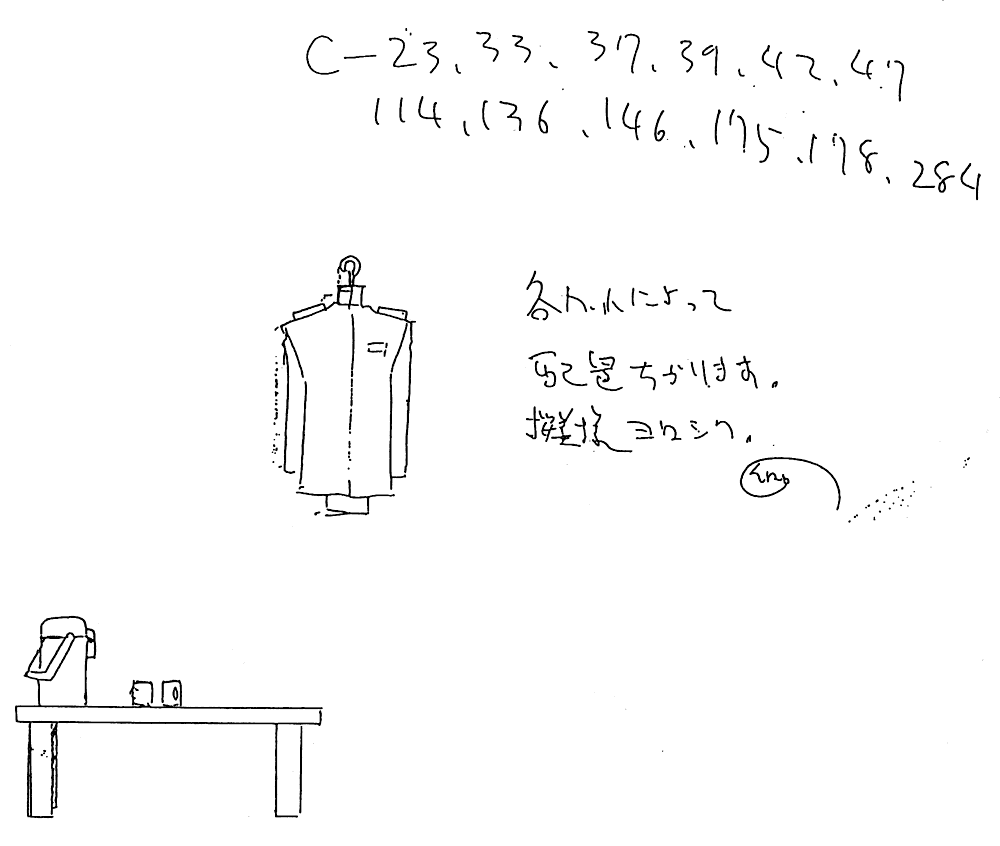 C-23、33、37、39、42、47
114、136、146、175、178、284
各カットによって
配置ちがいます。
ヨロシク。